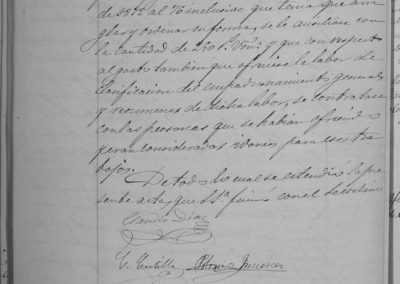 de 1875 al 76 inclusive que tenia que arre
glar y ordenar en forma, se le auxiliase con
la cantidad de 250 ps. Vón. y que con respecto
al gasto tambien que ofreciese la labor de
clasificacion del empadronamiento general
y resumenes de dicha labor, se contratase
con las personas que se habian ofrecido y
eran consideradas idoneas para esos tra
bajos.
De todo lo cual se estendió la pre
sente acta, que S.Sª. firmó con el Secretario
Claudio Diaz
C. Cutilla
Jimenez